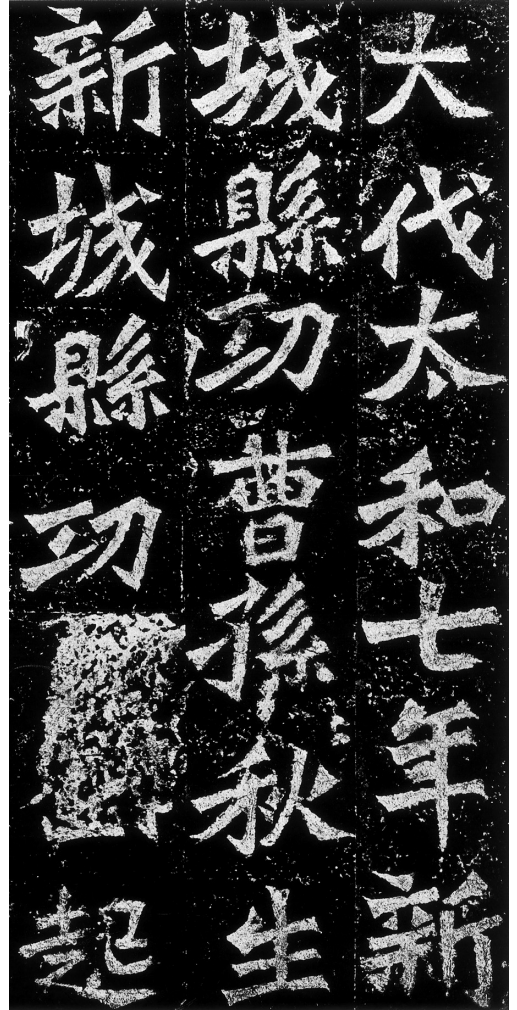 大代太和七年新
城縣功曹孫秋生
新城縣功起